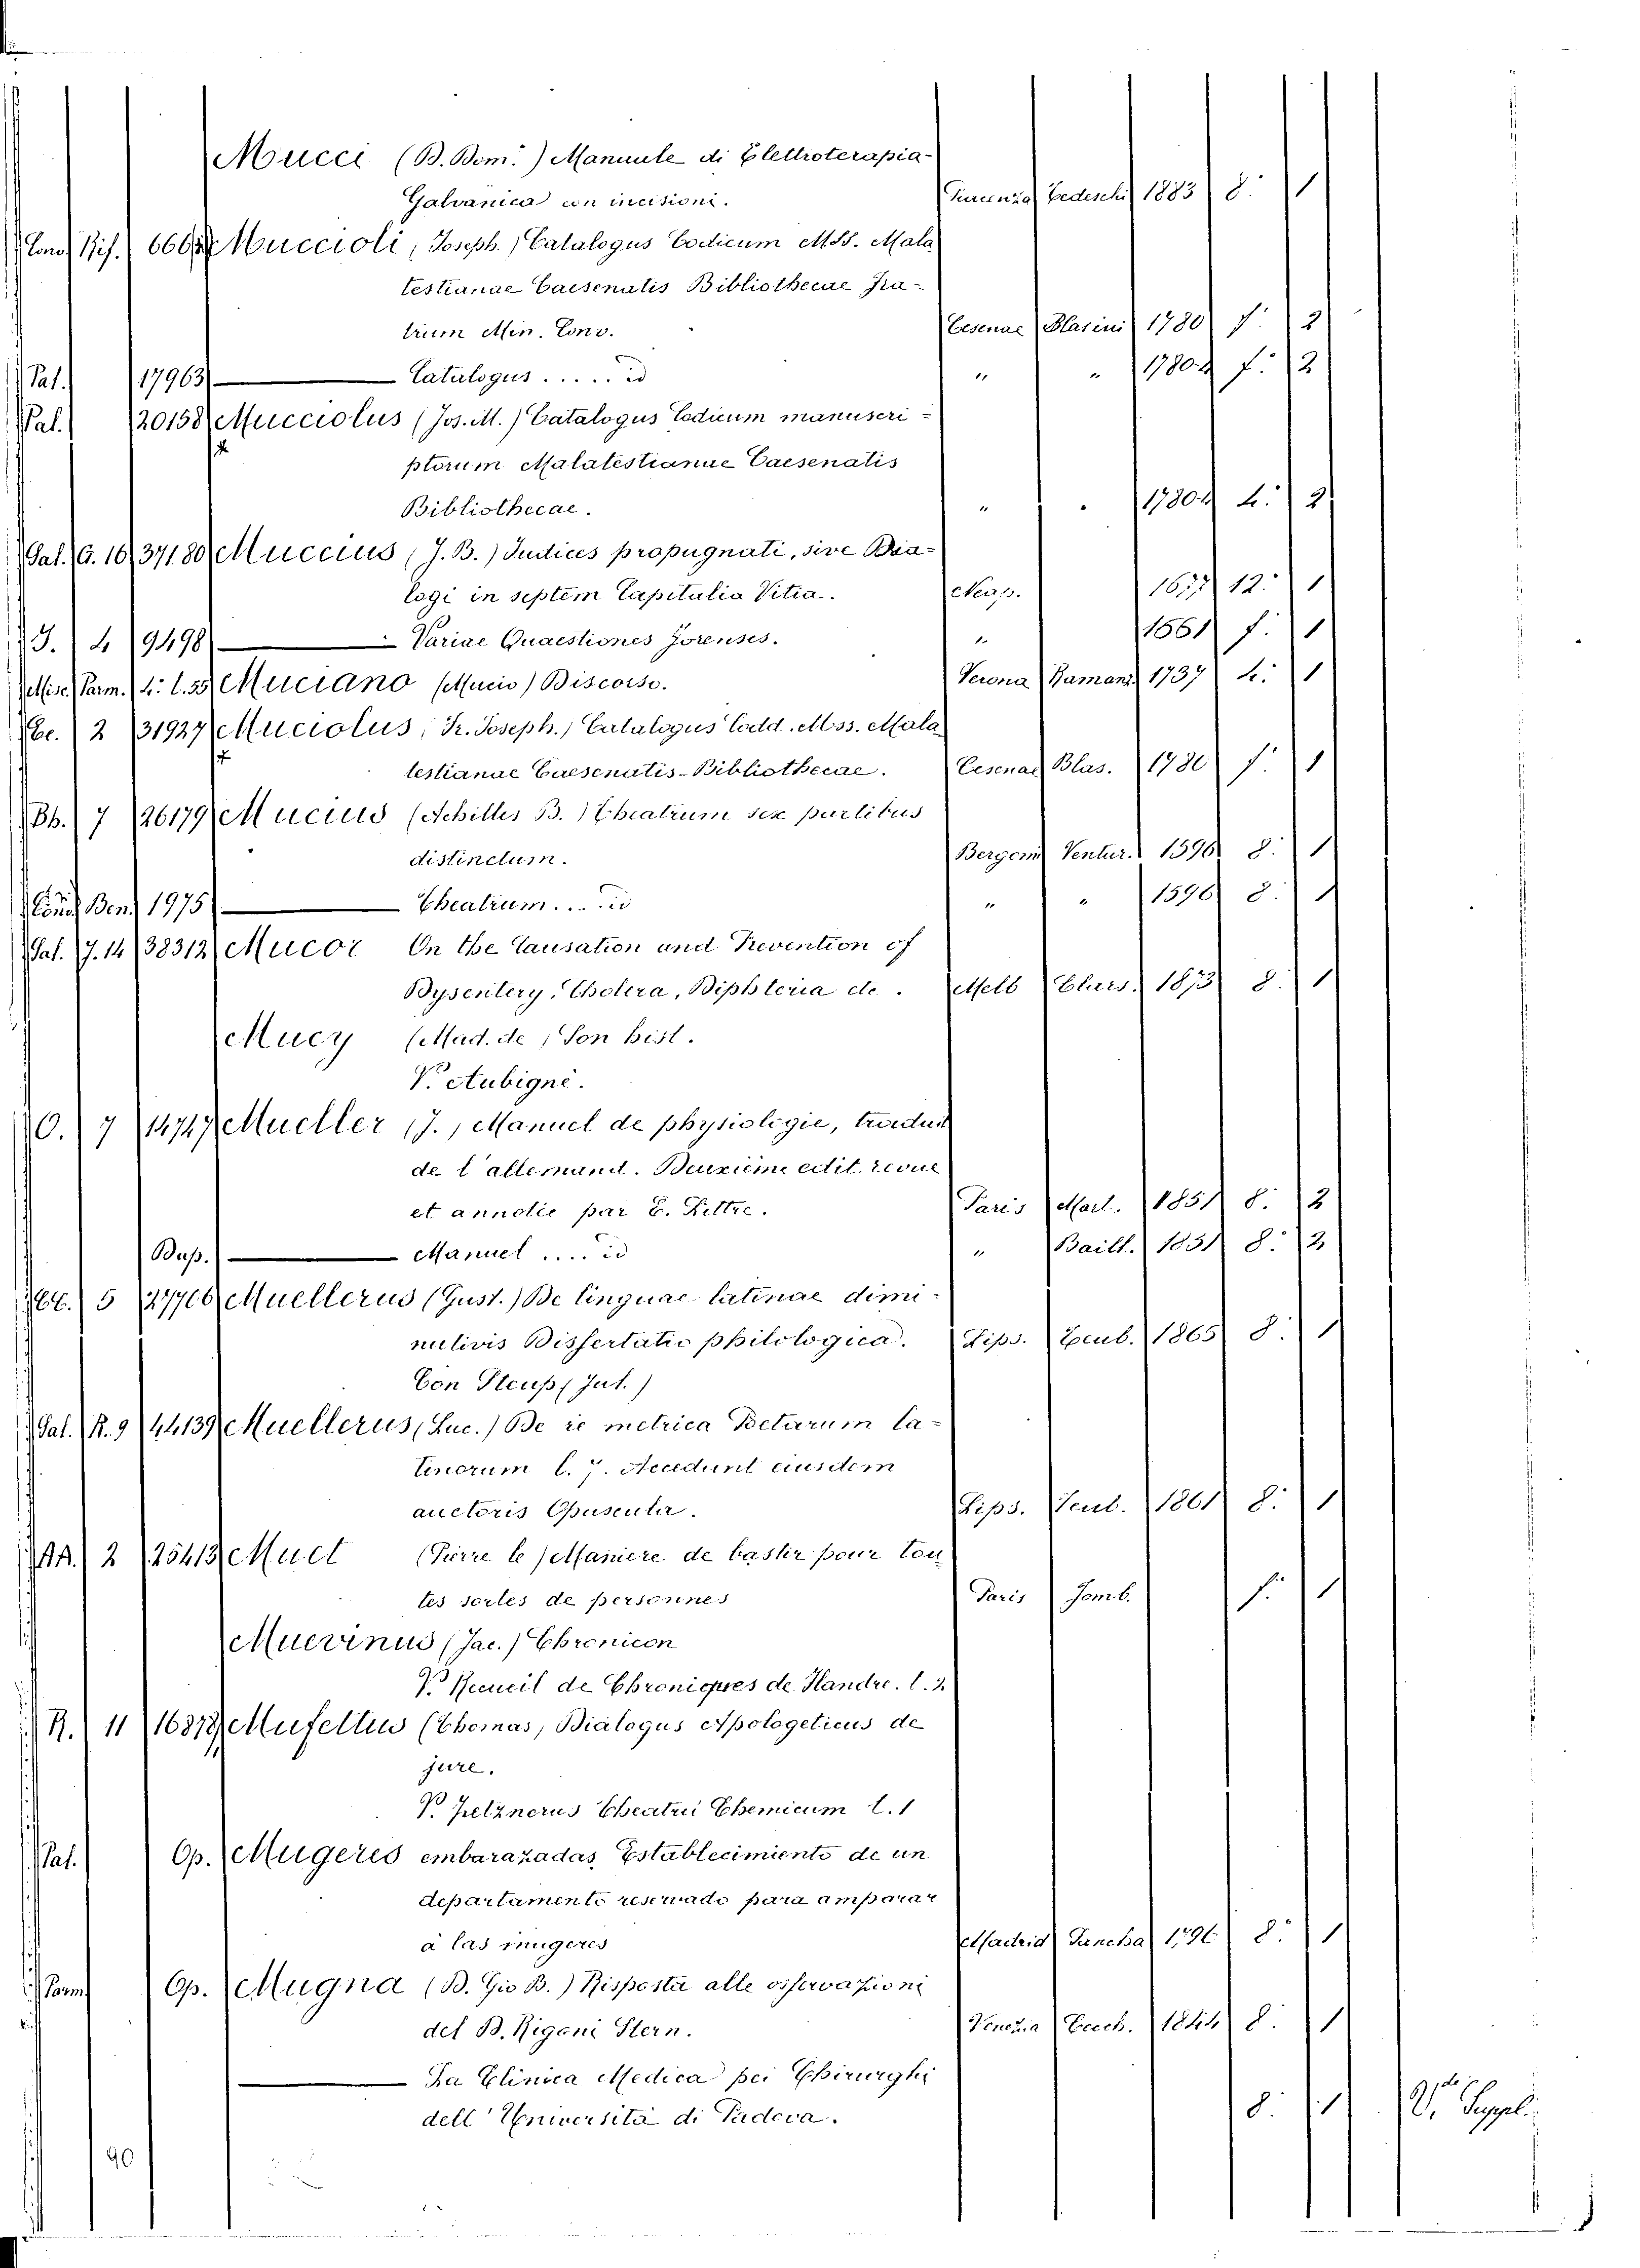 Mucci (D. Dom.) Manuale di Elettroterapia
Galvanica con incisioni. Piacenza Tedeschi 1883 8. 1
Cond. Rif. 666 Muccioli (Joseph.) Catalogus Codicum MSS. Mala
testianae Caesenatis Bibliothecae Fra-
trum Min. Conv. Cesenae Blasini 1780 f. 2
Pal. 17963 Catalogus ..... id " " 1780.4 f. 2
Pal. 20158 Mucciolus (Jos. M.) Catalogus Codicum manuscri-
ptorum Malatestianae Caesenatis
Bibliothecae. " " 1780.4 4. 2
Pal. G. 16 37180 Muccius (J. B.) Judices propugnati, sive Dia-
logi in septem Capitalia Vitia. Neap. 1677 12. 1
J. 4 9498 Variae Quaestiones Forenses. " 1661 f. 1
Misc. Parm. 4. l. 55 Muciano (Mucio) Discorso. Verona Ramanz 1737 4. 1
Cc. 2 31927 Muciolus, Fr. Joseph.) Catalogus Codd. Mss. Mala
testianae Caesenatis-Bibliothecae. Cesenae Blas. 1780 f. 1
Bb. 7 26179 Mucius (Achilles B.) Theatrum sex partibus
distinctum. Bergomi Ventur. 1596 8. 1
Cond. Ben. 1975 Theatrum .... id " " 1596 8. 1
Pal. J. 14 38312 Mucor On the Causation and Prevention of
Dysentery, Cholera, Diphteria etc. Melb Clars. 1873 8. 1
Mucy (Mad. de) Son hist.
V. Aubigné.
O. 7 14747 Mueller (J.) Manuel de physiologie, traduit
de l'allemand. Deuxième edit. revue
et annotée par E. Littre. Paris Mart. 1851 8. 2
Dup. Manuel .... id " Baill. 1851 8. 2
5 27706 Muellerus (Gust.) De linguae latinae dimi-
nutivis Dissertatio philologica. Lips. Teub. 1865 8. 1
Con Steup (Jul.)
Pal. R. 9 44139 Muellerus (Luc.) De re metrica Poetarum la-
tinorum l. 7. Accedunt eiusdem
auctoris Opuscula. Lips. Teub. 1861 8. 1
AA. 2 25413 Muet (Pierre le) Maniere de bastir pour tou
tes sortes de personnes Paris Jomb. f. 1
Muevinus (Jac.) Chronicon
V. Recueil de Chroniques de Flandre. t. 2
R. 11 16878 Mufettus (Thomas) Dialogus Apologeticus de
jure.
V. Zetznerus Theatri Chemicum t. 1
Pal. Op. Mugeres embarazadas, Establecimiento de un
departamento reservado para amparar
a las mugeres Madrid Sancha 1796 8. 1
Parm. Op. Mugna (D. Gio B.) Risposta alle osservazioni
del D. Rigoni Stern. Venezia Cecch. 1844 8. 1
La Clinica Medica pei Chirurghi
dell' Università di Padova. 8. 1 V. de Suppl.
90